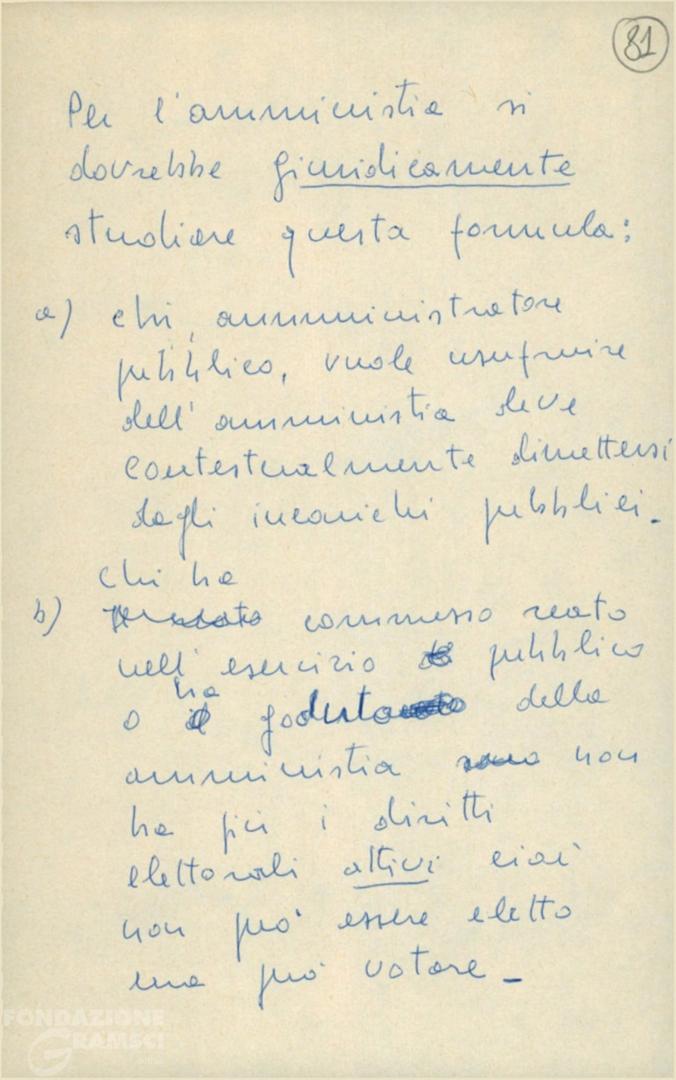 81
Per l'amministia si
dovrebbe giuridicamente
studiare questa formula:
a) chi, amministratore
pubblico, vuole usufruire
dell'amministia deve
contestualmente dimettersi
dagli incarichi pubblici.
chi ha
b) commesso reato
nell'esercizio pubblico
ha
o goduto della
amministia non
ha più i diritti
elettorali attivi cioè
non può essere eletto
ma può votare.
FONDAZIONE
GRAMSCI